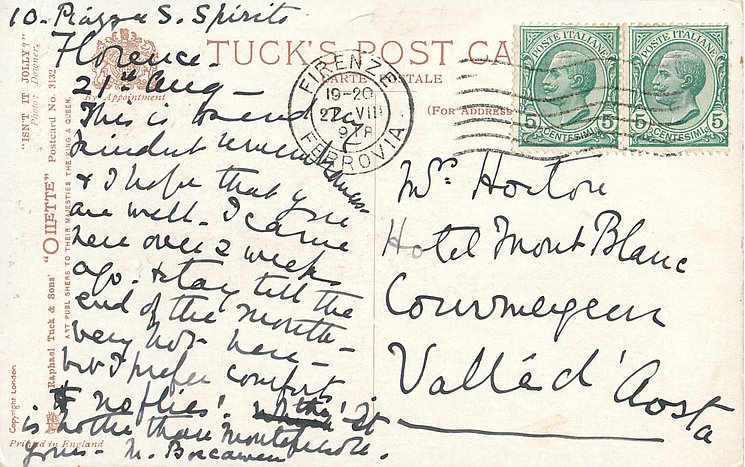 10. Piazza S. Spirito
Florence.
27th Aug —
This is to send my
kindest remembrances
& I hope that you
are well. I came
here over 2 weeks
ago. & stay till the
end of the month —
very hot here —
but I prefer comfort
& no flies! the' It
is hotter than
yours — M. Boscawen
TUCK'S POST CA
CARTE POSTALE
(FOR ADDRESS
By Appointment
"ISN'T IT JOLLY?"
Photo: Downer.
Raphael Tuck & Sons' "OILETTE" Postcard No. 3132
ART PUBLISHERS TO THEIR MAJESTIES THE KING & QUEEN.
Copyright London
Printed in England
FIRENZE
19-20
27 VIII
FERROVIA
POSTE ITALIANE
5 CENTESIMI 5
POSTE ITALIANE
5 CENTESIMI 5
Mrs Horton
Hotel Mont Blanc
Courmayeur
Valle d'Aosta